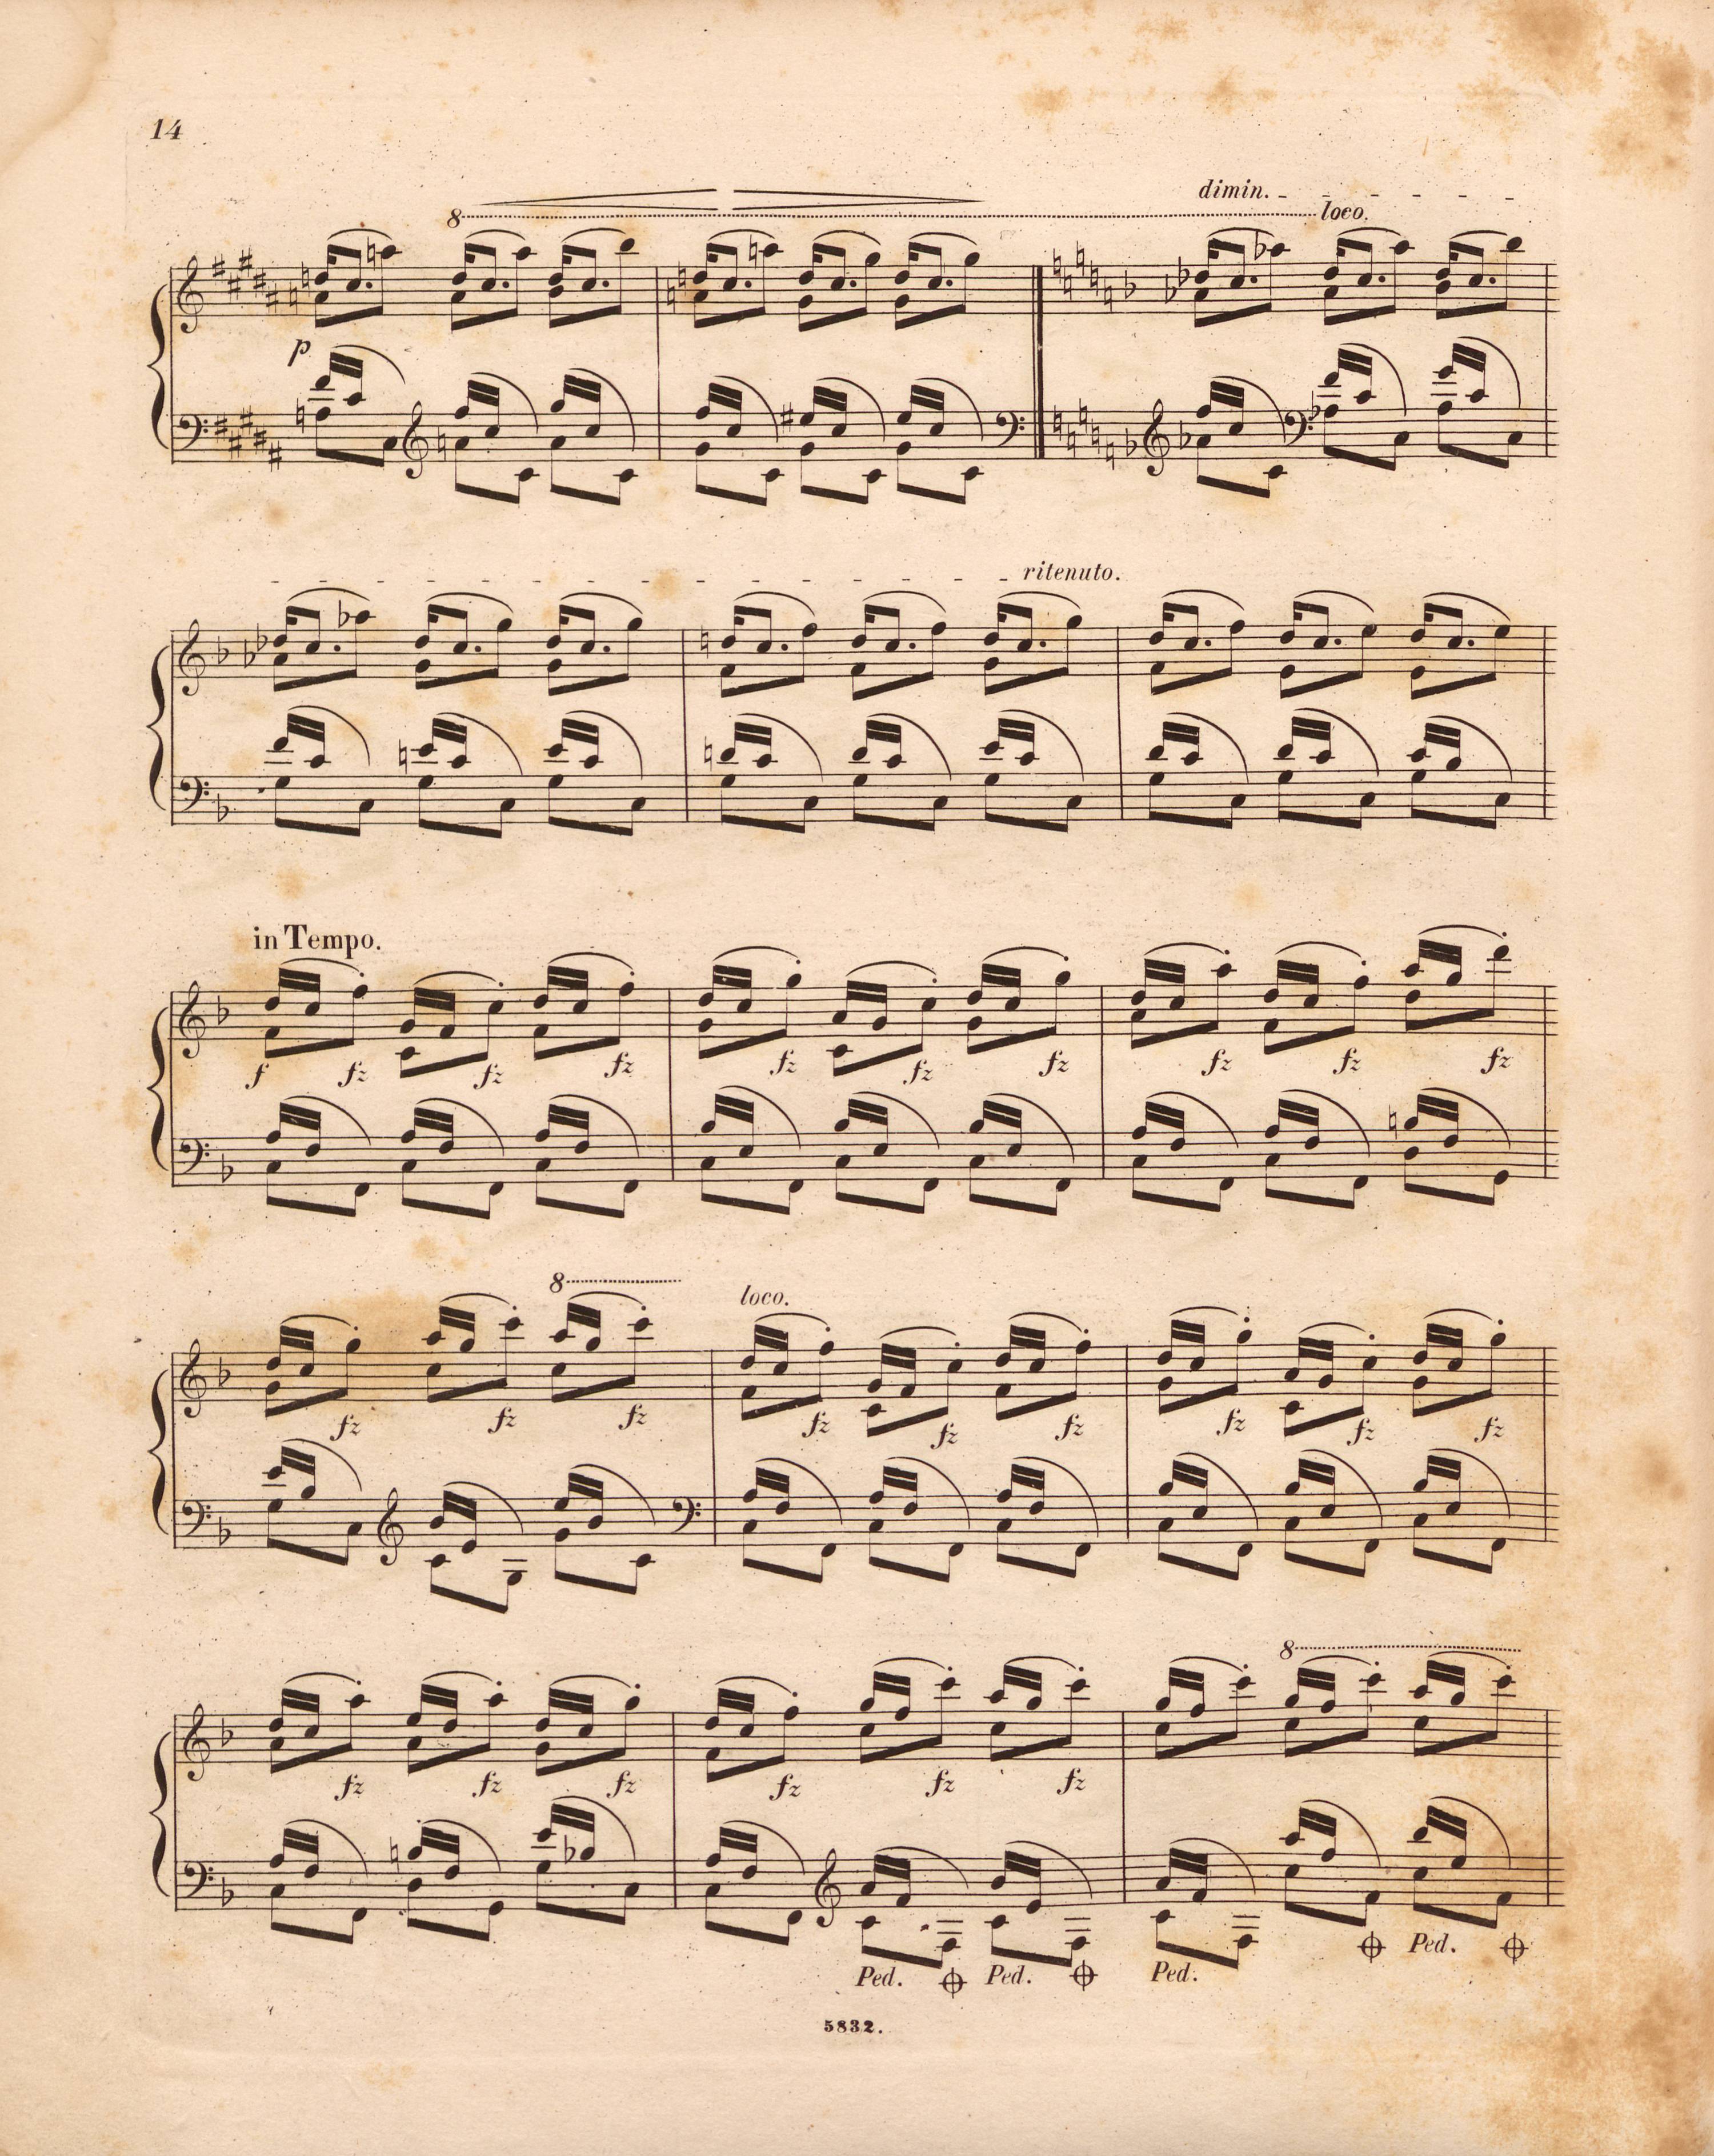 14
dimin.
8 loco.
p
ritenuto.
in Tempo.
f fz fz fz fz fz fz fz fz fz
8
loco.
fz fz fz fz fz fz fz fz fz
8
fz fz fz fz fz fz
Ped. Ped. Ped. Ped.
5832.